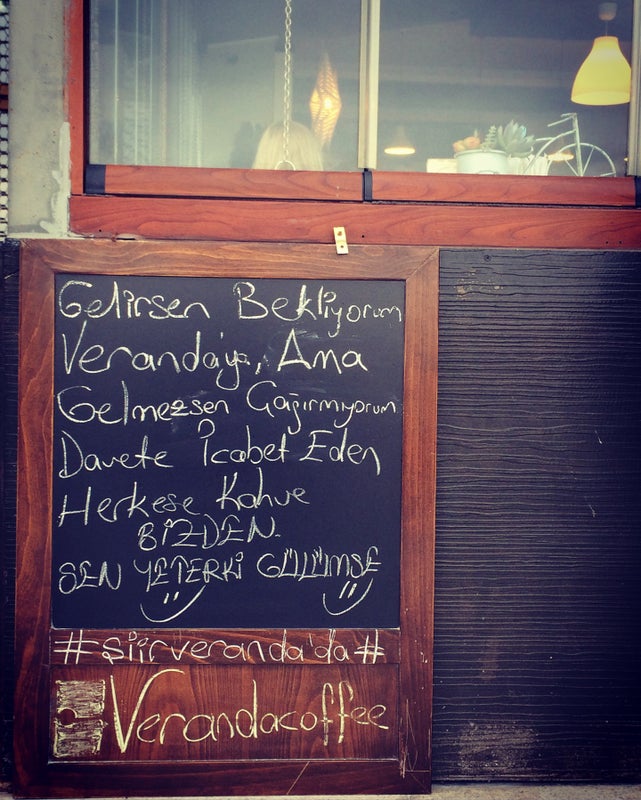 Gelirsen Bekliyorum
Veranda'ya, Ama
Gelmezsen Çağırmıyorum
Davete İcabet Eden
Herkese Kahve
BİZDEN.
SEN YETERKİ GÜLÜMSE
#şiirveranda'da#
Verandacoffee